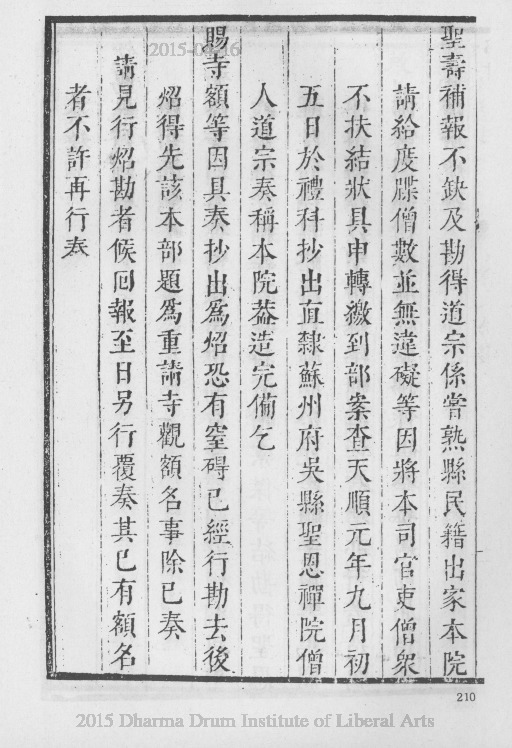 聖壽補報不缺及勘得道宗係嘗熟縣民籍出家本院
請給度牒僧數並無違礙等因將本司官吏僧衆
不扶結狀具申轉繳到部案查天順元年九月初
五日於禮科抄出直隸蘇州府吳縣聖恩禪院僧
人道宗奏稱本院葢造完備乞
賜寺額等因具奏抄出爲炤恐有窒碍已經行勘去後
炤得先該本部題爲重請寺觀額名事除已奏
請見行炤勘者候囘報至日另行覆奏其已有額名
者不許再行奏
210
2015-04-16
2015 Dharma Drum Institute of Liberal Arts